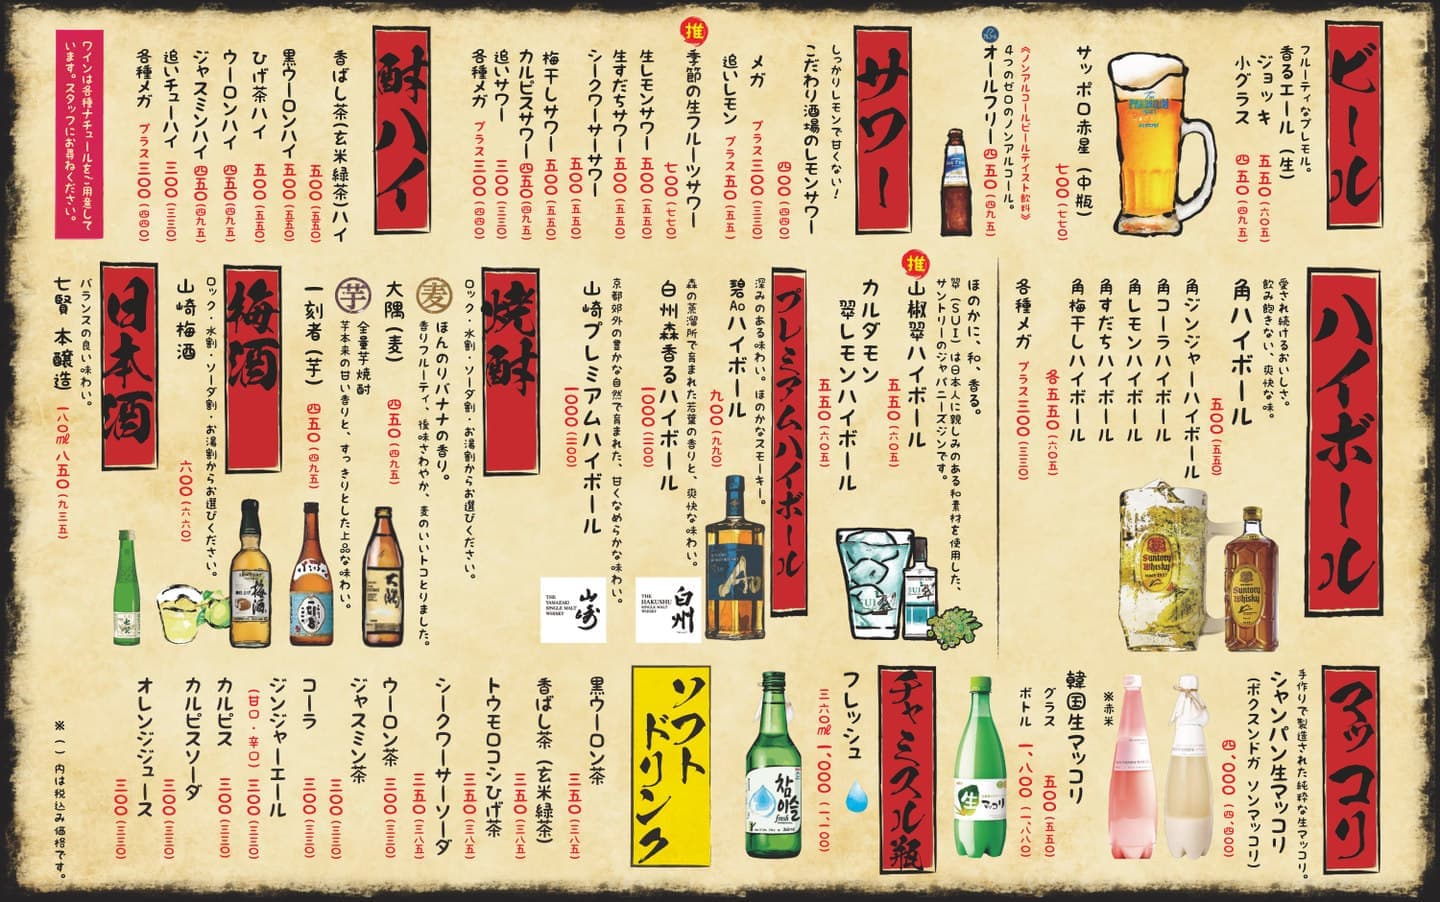 ビール
フルーティなプレモル。
香るエール(生)
ジョッキ 五五〇(六〇五)
小グラス 四五〇(四九五)
サッポロ赤星(中瓶) 七〇〇(七七〇)
《ノンアルコールビールテイスト飲料》
4つのゼロのノンアルコール。
オールフリー 四五〇(四九五)
サワー
しっかりレモンで甘くない!
こだわり酒場のレモンサワー 四〇〇(四四〇)
メガ プラス三〇〇(三三〇)
追いレモン プラス五〇(五五)
推
季節の生フルーツサワー 七〇〇(七七〇)
生レモンサワー 五〇〇(五五〇)
生すだちサワー 五〇〇(五五〇)
シークワーサーサワー 五〇〇(五五〇)
梅干しサワー 五〇〇(五五〇)
カルピスサワー 四五〇(四九五)
追いサワー 三〇〇(三三〇)
各種メガ プラス三〇〇(四四〇)
酎ハイ
香ばし茶(玄米緑茶)ハイ 五〇〇(五五〇)
黒ウーロンハイ 五〇〇(五五〇)
ひげ茶ハイ 五〇〇(五五〇)
ウーロンハイ 四五〇(四九五)
ジャスミンハイ 四五〇(四九五)
追いチューハイ 三〇〇(三三〇)
各種メガ プラス三〇〇(四四〇)
ワインは各種ナチュールをご用意して
います。スタッフにお尋ねください。
ハイボール
愛され続けるおいしさ。
飲み飽きない、爽快な味。
角ハイボール 五〇〇(五五〇)
角ジンジャーハイボール
角コーラハイボール
角レモンハイボール
角すだちハイボール
角梅干しハイボール
各五五〇(六〇五)
各種メガ プラス三〇〇(三三〇)
Suntory
Whisky
Suntory
Whisky
ほのかに、和、香る。
翠(SUI)は日本人に親しみのある和素材を使用した、
サントリーのジャパニーズジンです。
推
山椒翠ハイボール 五五〇(六〇五)
カルダモン
翠レモンハイボール 五五〇(六〇五)
SUI
翠
プレミアムハイボール
深みのある味わい。ほのかなスモーキー。
碧Aoハイボール 九〇〇(九九〇)
森の蒸溜所で育まれた若葉の香りと、爽快な味わい。
白州森香るハイボール 1000(二〇〇)
京都郊外の豊かな自然で育まれた、甘くなめらかな味わい。
山崎プレミアムハイボール 1000(二〇〇)
Ao
THE
HAKUSHU
SINGLE MALT
WHISKY
白州
THE
YAMAZAKI
SINGLE MALT
WHISKY
山崎
焼酎
ロック・水割・ソーダ割・お湯割からお選びください。
麦
ほんのりバナナの香り。
香りフルーティ、後味さわやか、麦のいいトコとりました。
大隅(麦) 四五〇(四九五)
芋
全量芋焼酎
芋本来の甘い香りと、すっきりとした上品な味わい。
一刻者(芋) 四五〇(四九五)
大隅
一刻者
梅酒
ロック・水割・ソーダ割・お湯割からお選びください。
山崎梅酒 六〇〇(六六〇)
梅酒
日本酒
バランスの良い味わい。
七賢 本醸造 一八〇㎖ 八五〇(九三五)
七賢
マッコリ
手作りで製造された純粋な生マッコリ。
シャンパン生マッコリ
(ボクスンドガ ソンマッコリ) 四,〇〇〇(四,四〇〇)
※赤米
韓国生マッコリ
グラス 五〇〇(五五〇)
ボトル 一,八〇〇(一,八八〇)
生マッコリ
チャミスル瓶
フレッシュ
三六〇㎖ 一,〇〇〇(一,一〇〇)
참이슬
fresh
ソフト
ドリンク
黒ウーロン茶 三五〇(三八五)
香ばし茶(玄米緑茶) 三五〇(三八五)
トウモロコシひげ茶 三五〇(三八五)
シークワーサーソーダ 三五〇(三八五)
ウーロン茶 三〇〇(三三〇)
ジャスミン茶 三〇〇(三三〇)
コーラ 三〇〇(三三〇)
ジンジャーエール
(甘口・辛口) 三〇〇(三三〇)
カルピス 三〇〇(三三〇)
カルピスソーダ 三〇〇(三三〇)
オレンジジュース 三〇〇(三三〇)
※( )内は税込み価格です。